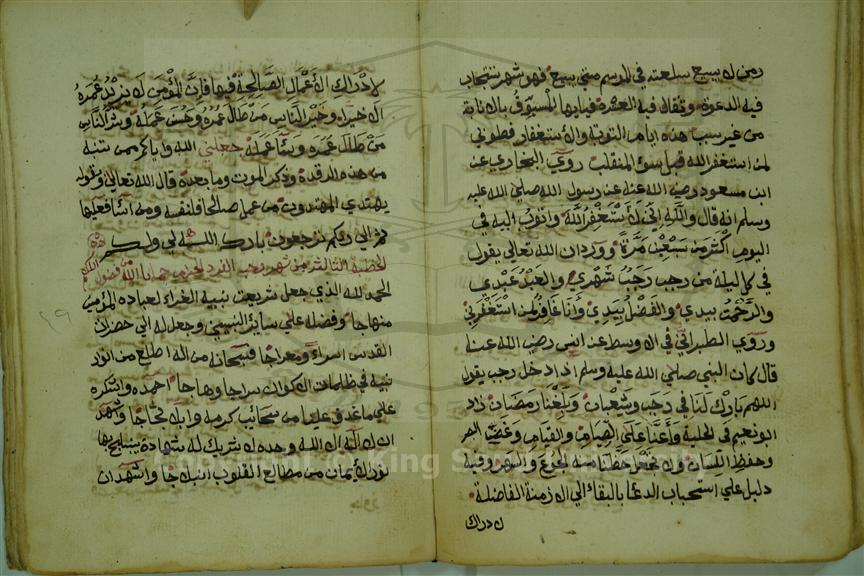 ومن لم يبيع سلعته في الموسم متي يبيع فهو شهر تستجاب
فيه الدعوة وتقال فيه العثرة فيا ايها المسوف بالانابة
من غير سبب هذه ايام التوبة والاستغفار فطوبي
لمن استغفر الله قبل سوء المنقلب روي البخاري عن
ابن مسعود رضي الله عنه عن رسول الله صلي الله عليه
وسلم انه قال والله اني لاستغفر الله واتوب اليه في
اليوم اكثر من سبعين مرة وورد ان الله تعالي يقول
في كل ليلة من رجب رجب شهري والعبد عبدي
والرحمة بيدي والفضل بيدي وانا غافر لمن استغفرني
وروي الطبراني في الاوسط عن انس رضي الله عنه
قال كان النبي صلي الله عليه وسلم اذا دخل رجب يقول
اللهم بارك لنا في رجب وشعبان وبلغنا رمضان زاد
ابو نعيم في الحلية واعنا علي الصيام والقيام وغض البصر
وحفظ اللسان ولا تجعل حظنا منه الجوع والسهر وفيه
دليل علي استحباب الدعا بالبقاء الي الازمنة الفاضلة
لادراك
لادراك الاعمال الصالحة فيها فان المؤمن لا يزيد عمره
الا خيرا وخير الناس من طال عمره وحسن عمله وشر الناس
من طال عمره وساء عمله جعلني الله واياكم ممن تنبه
من هذه الرقدة وذكر الموت وما بعده قال الله تعالي وبقوله
يهتدي المهتدون من عمل صالحا فلنفسه ومن اساء فعليها
ثم الي ربكم ترجعون بارك الله لي ولكم
الخطبة الثالثة من شهر رجب الفرد
الحمد لله الذي جعل شريعة نبيه الغراء لعباده المؤمنين
منهاجا وفضله علي ساير النبيين وجعل له الي حضرات
القدس اسراء ومعراجا فسبحانه من اله اطلع من انور
نبيه في ظلمات الاكوان سراجا وهاجا احمده واشكره
علي ما غدق علينا من سحائب كرمه وابله ثجاجا واشهد
ان لا اله الا الله وحده لا شريك له شهادة ينبلج بها
نور الايمان من مطالع القلوب انبلاجا واشهد ان